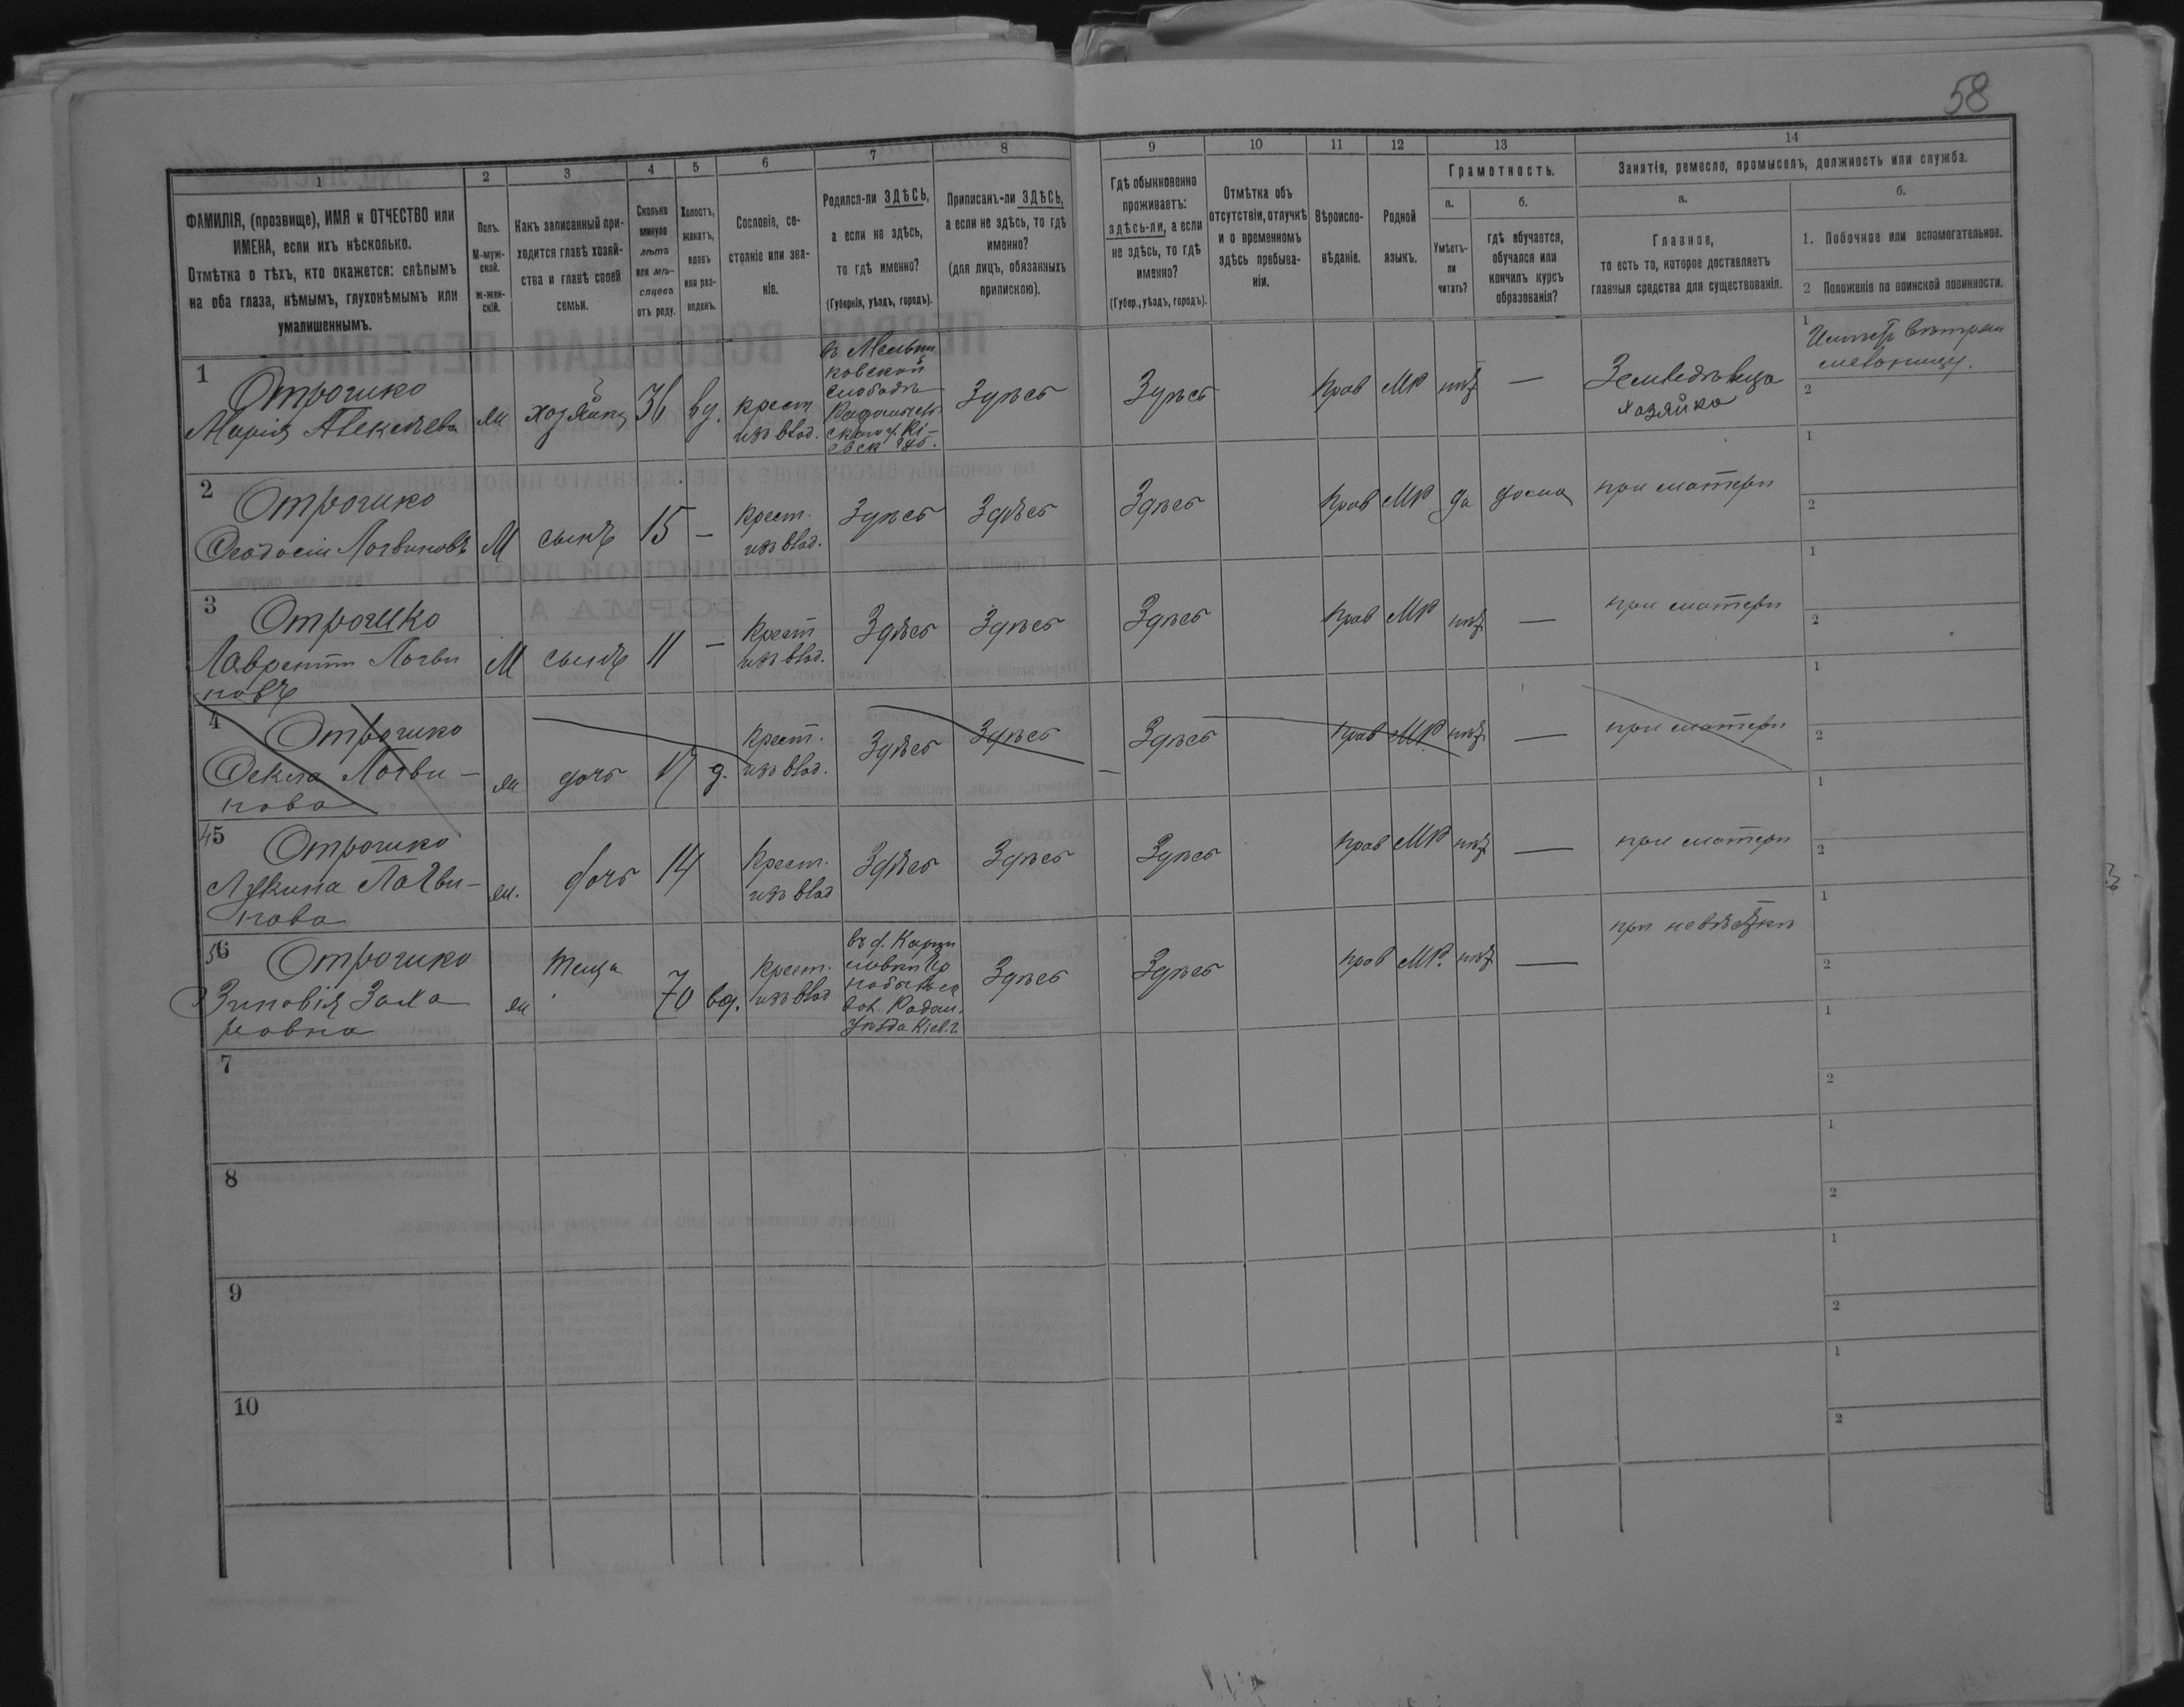 58
1
2
3
4
5
6
7
8
9
10
11
12
13
14
ФАМИЛІЯ, (прозвище), ИМЯ и ОТЧЕСТВО или
ИМЕНА, если ихъ нѣсколько.
Отмѣтка о тѣхъ, кто окажется: слѣпымъ
на оба глаза, нѣмымъ, глухонѣмымъ или
умалишеннымъ.
Полъ.
М-муж-
ской.
ж-жен-
скій.
Какъ записанный при-
ходится главѣ хозяй-
ства и главѣ своей
семьи.
Сколько
минуло
лѣтъ
или мѣ-
сяцевъ
отъ роду.
Холостъ,
женатъ,
вдовъ
или раз-
веденъ.
Сословіе, со-
стояніе или зва-
ніе.
Родился-ли ЗДѢСЬ,
а если не здѣсь,
то гдѣ именно?
(Губернія, уѣздъ, городъ).
Приписанъ-ли ЗДѢСЬ,
а если не здѣсь, то гдѣ
именно?
(для лицъ, обязанныхъ
припискою).
Гдѣ обыкновенно
проживаетъ:
здѣсь-ли, а если
не здѣсь, то гдѣ
именно?
(Губер., уѣздъ, городъ).
Отмѣтка объ
отсутствіи, отлучкѣ
и о временномъ
здѣсь пребыва-
ніи.
Вѣроиспо-
вѣданіе.
Родной
языкъ.
Грамотность.
а.
б.
Умѣетъ-
ли
читать?
гдѣ обучается,
обучался или
кончилъ курсъ
образованія?
Занятія, ремесло, промыселъ, должность или служба.
а.
б.
Главное,
то есть то, которое доставляетъ
главныя средства для существованія.
1. Побочное или вспомогательное.
2 Положеніе по воинской повинности.
1
Отрошко
Марія Алексѣева
хозяйка
36
вд.
крест
изъ влад.
ковской
слободѣ
Здѣсь
Здѣсь
прав
МР
нѣтъ
—
хозяйка
1
2
2
Отрошко
Феодосій Логвиновъ
М
сынъ
15
—
Крест.
изъ влад.
Здѣсь
Здѣсь
Здѣсь
прав
МР
да
дома
при матери
1
2
3
Отрошко
Лаврентій Логви
новъ
М
сынъ
11
—
Крест
изъ влад.
Здѣсь
Здѣсь
Здѣсь
прав
МР
нѣтъ
—
при матери
1
2
4
Отрошко
Фекла Логви-
нова
дочь
17
д.
Крест.
изъ влад.
Здѣсь
Здѣсь
Здѣсь
прав
МР
нѣтъ
—
при матери
1
2
45
Отрошко
Логви-
нова
дочь
14
Крест.
изъ влад
Здѣсь
Здѣсь
Здѣсь
прав
МР
нѣтъ
—
при матери
1
2
56
Отрошко
Зиновія Заха
ровна
теща
70
вд.
Крест.
изъ влад
Здѣсь
Здѣсь
прав
МР.
нѣтъ
—
при невѣсткѣ
1
2
7
1
2
8
1
2
9
1
2
10
1
2